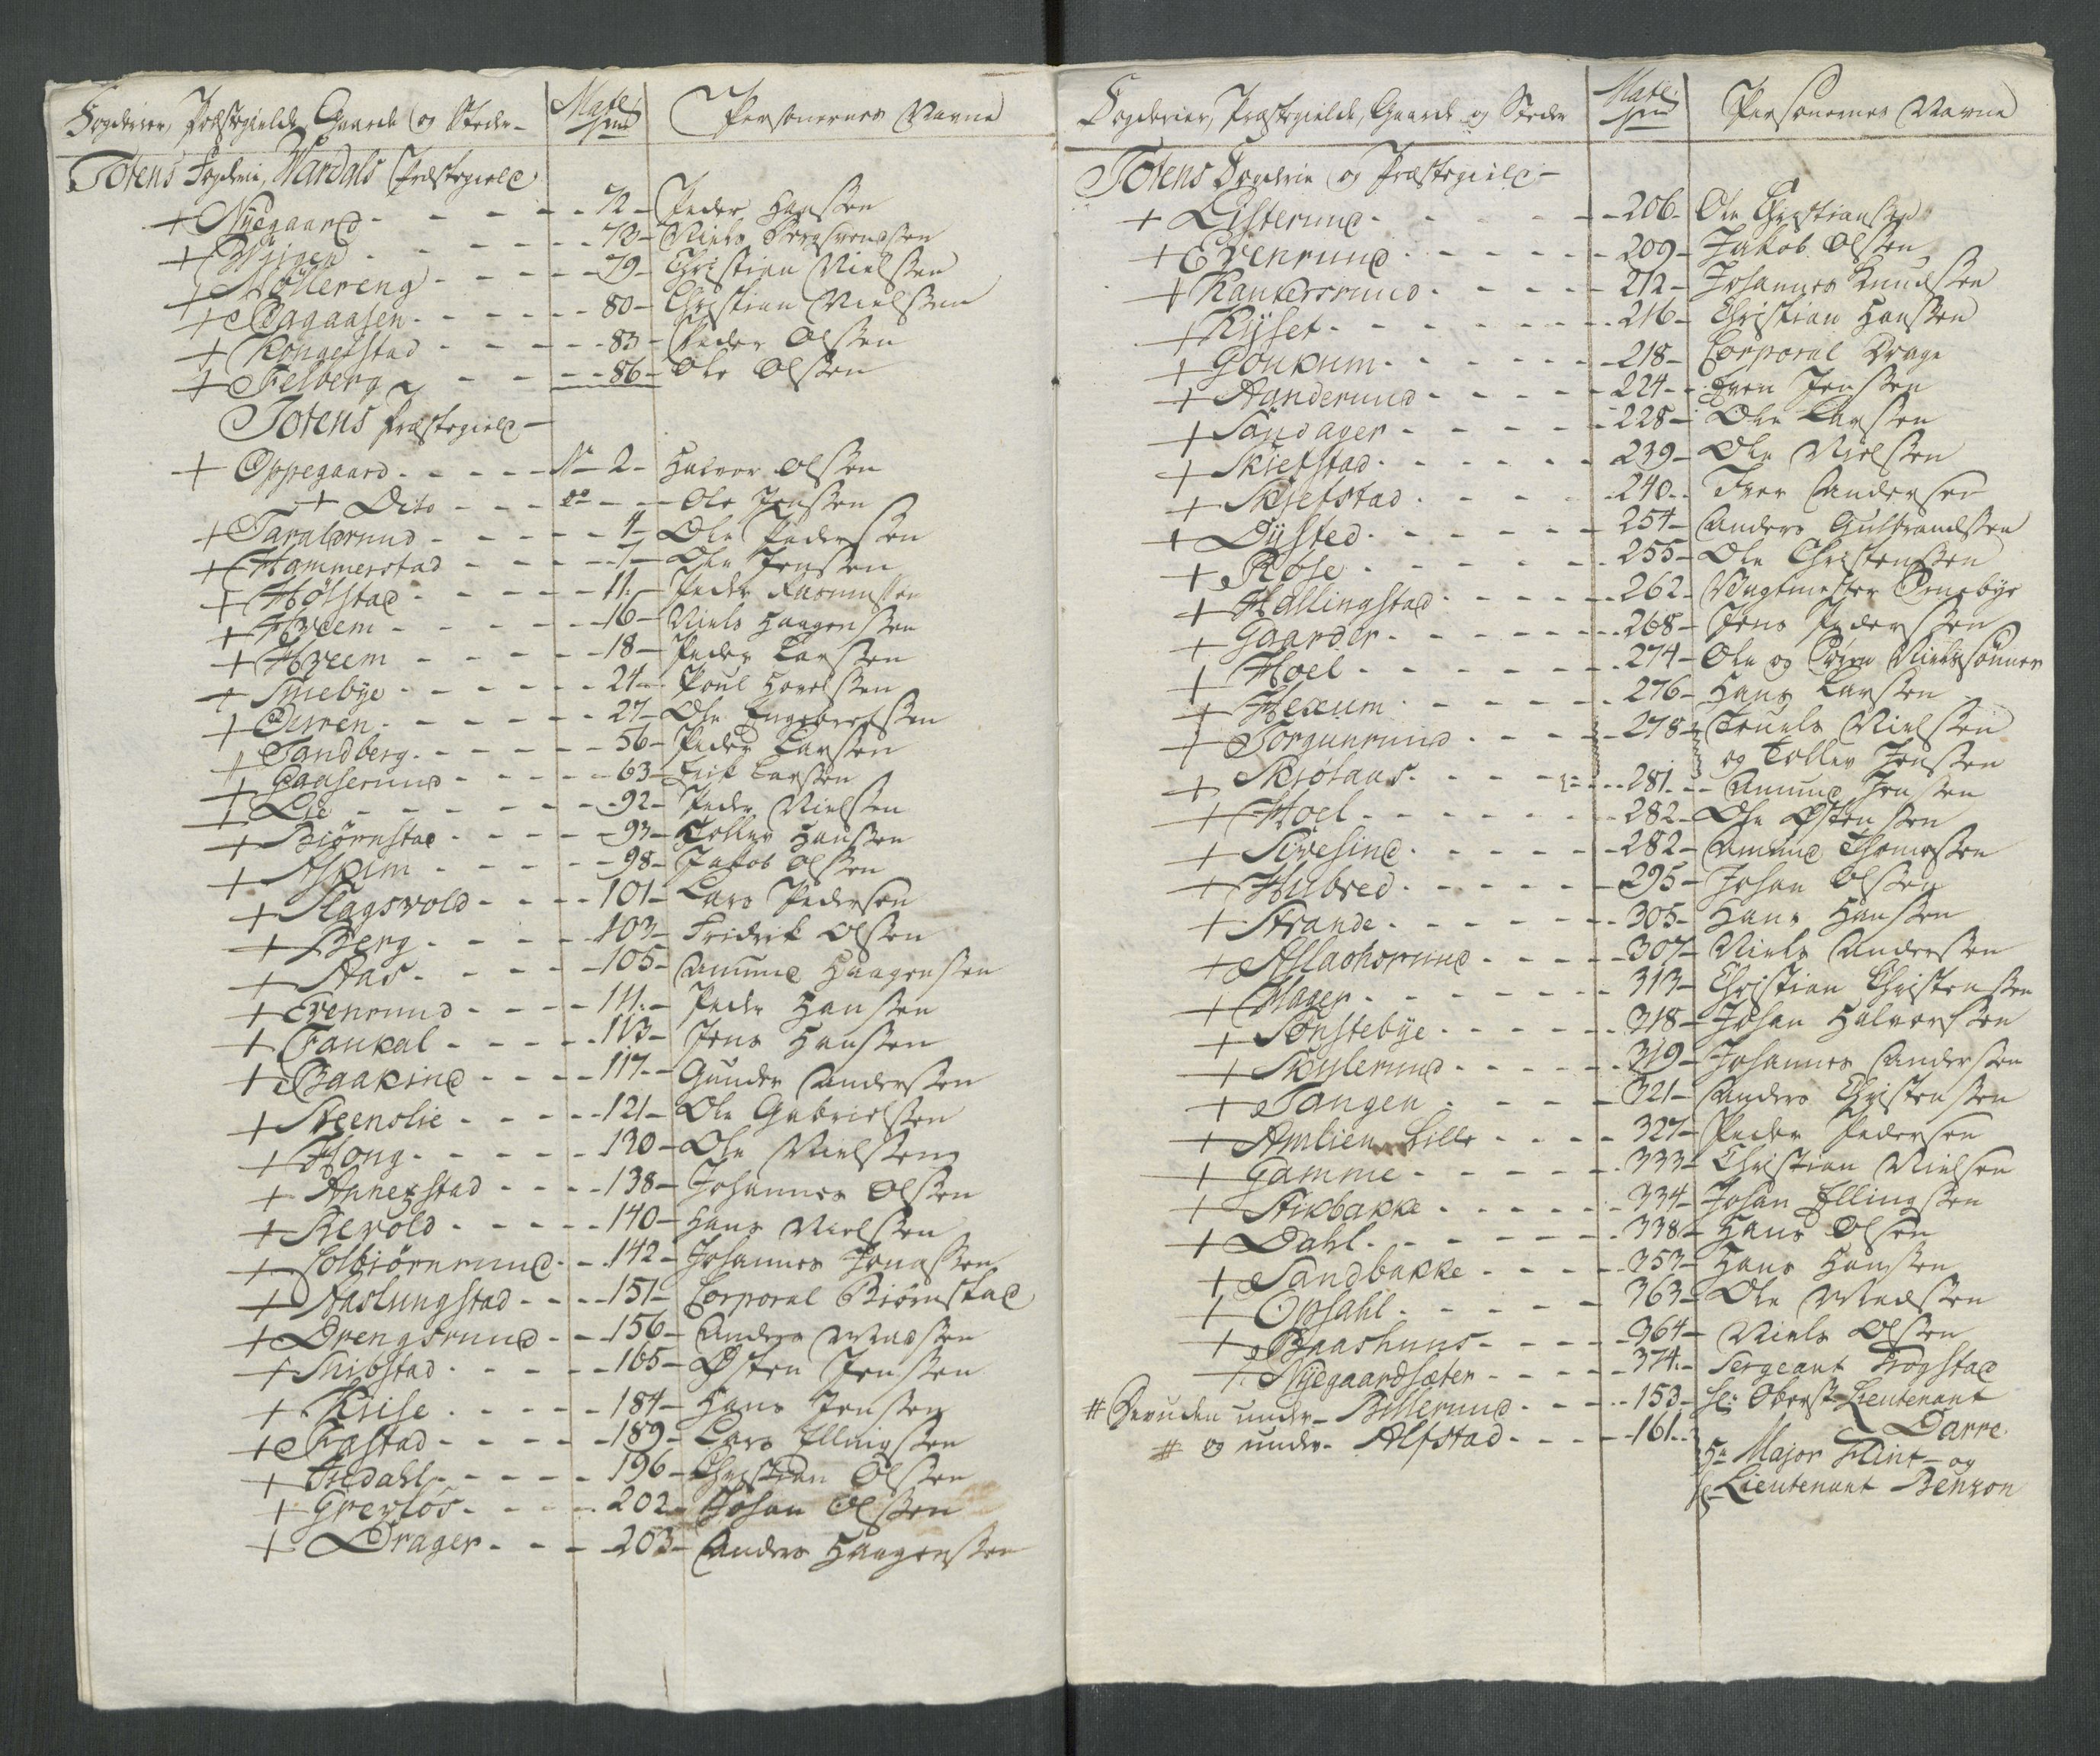 Fogderier, Præstegielde, Gaarde og Steder - Matr: No Personernes Navne
Totens Fogderie, Wardals Præstegield
+ Nyegaard - - - - 72 - Peder Hansen
+ - - - - 73 - Niels
+ Møllereng - - - - 79 - Christian Nielsen
+ Aagaasen - - - - 80 - Christian Nielsen
+ Kongelstad - - - - 83 - Peder Olsen
+ Felberg - - - - 86 - Ole Olsen
Totens Præstegield -
+ Oppegaard - - - - No 2 - Halvor Olsen
+ Dito - - - do - - Ole Jensen
+ Taralsrud - - - - 4 - Ole Pedersen
+ Hammerstad - - - - 7 - Ole Jensen
+ Hølstad - - - - 11 - Peder Rasmussen
+ Hveem - - - - 16 - Niels Haagensen
+ Hveem - - - - 18 - Peder Larsen
+ Smebye - - - - 24 - Poul Hovelsen
+ - - - - 27 - Ole Engebretsen
+ Sandberg - - - - 56 - Peder Larsen
+ Gaaserud - - - - 63 - Erik Larsen
+ Lie - - - - 92 - Peder Nielsen
+ Biørnstad - - - - 93 - Tollev Hansen
+ Askim - - - - 98 - Jakob Olsen
+ Slagsvold - - - - 101 - Lars Pedersen
+ Berg - - - - 103 - Fridrik Olsen
+ Aas - - - - 105 - Amund Haagensen
+ Evenrud - - - - 111 - Peder Hansen
+ Faukal - - - - 113 - Jens Hansen
+ Baakind - - - - 117 - Gunder Andersen
+ Steenslie - - - - 121 - Ole Gabrielsen
+ Hong - - - - 130 - Ole Nielsen
+ Annexstad - - - - 138 - Johannes Olsen
+ Revold - - - - 140 - Hans Nielsen
+ Colbiørnrud - - 142 - Johannes Jonassen
+ Aaslungstad - - - 151 - Corporal Biørnstad
+ Drengsrud - - 156 - Anders Madsen
+ Snibstad - - - - 165 - Østen Jensen
+ Krise - - - - 184 - Hans Jensen
+ Fastad - - - - 189 - Lars Ellingsen
+ Stedahl - - - - 196 - Christian Olsen
+ Grevløs - - - - 202 - Johan Olsen
+ Drager - - - - 203 - Anders Haagensen
Fogderier, Præstegielde, Gaarde og Steder Matr: No Personernes Navne
Totens Fogderie og Præstegield -
+ Listerud - - - - 206 - Ole Christiansen
+ Evenrud - - - - 209 - Jakob Olsen
+ Rankersrud - - - - 212 - Johannes Knudsen
+ Ryset - - - - 216 - Christian Hansen
+ Goukum - - - - 218 - Corporal Drage
+ Aanderud - - - - 224 - Even Jensen
+ Søndager - - - - 228 - Ole Larsen
+ Skiefstad - - - - 239 - Ole Nielsen
+ Skiefstad - - - - 240 - Iver Andersen
+ Dysted - - - - 254 - Anders Gulbrandsen
+ Røse - - - - 255 - Ole Christensen
+ Hallingstad - - - - 262 - Vagtmester
+ Gaarder - - - - 268 - Jens Pedersen
+ Hoel - - - - 274 - Ole og Nielssønner
+ Hexum - - - - 276 - Hans Larsen
+ Torgunrud - - - - 278 - Truels Nielsen
og Tollev Jensen
+ Skiølaas - - - - 281 - Amund Jensen
+ Hoel - - - - 282 - Ole Østensen
+ Sivesind - - - - 282 - Amund Thomesen
+ Hubred - - - - 295 - Johan Olsen
+ Strande - - - - 305 - Hans Hansen
+ - - - - 307 - Niels Andersen
+ Hager - - - - 313 - Christian Christensen
+ Sønstebye - - - - 318 - Johan Halvorsen
+ Skulerud - - - - 319 - Johannes Andersen
+ Tangen - - - - 321 - Anders Christensen
+ Amlien Lille - - - - 327 - Peder Pedersen
+ Gamme - - - - 333 - Christian Nielsen
+ Stikbakke - - - - 334 - Johan Ellingsen
+ Dahl - - - - 338 - Hans Olsen
+ Sandbakke - - - - 353 - Hans Hansen
+ Opsahl - - - - 363 - Ole Madsen
+ Baashuus - - - - 364 - Niels Olsen
+ Nyegaardsæter - - - - 374 - Sergeant Kogstad
# Desuden under - Billerud - - - 153 - Hr: Oberst-Lieutenant
# og under - Alfstad - - - 161 - Darre
Hr Major Flint - og
Hr Lieutenant Benzon